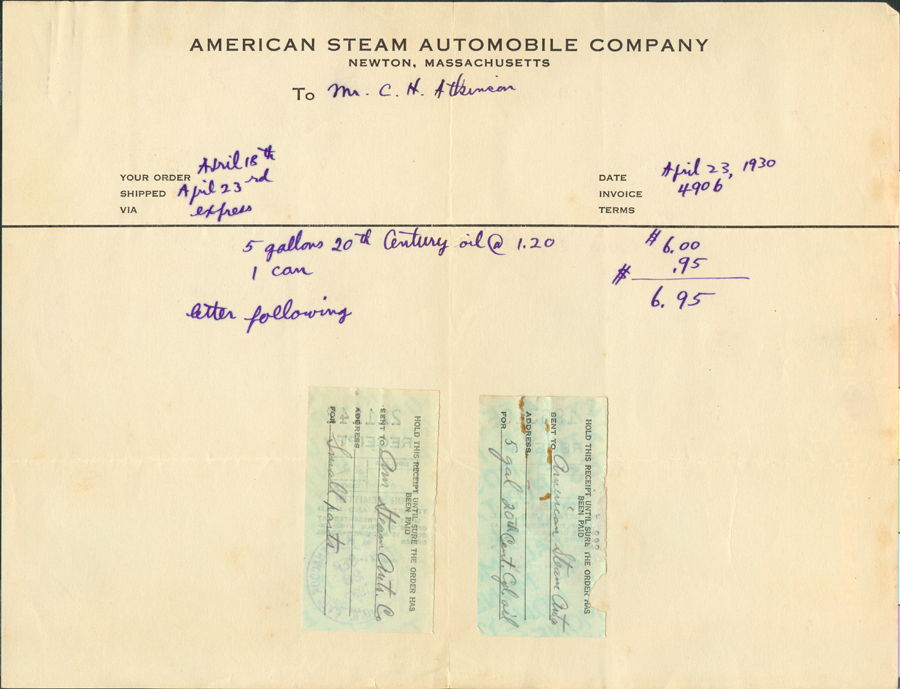 AMERICAN STEAM AUTOMOBILE COMPANY
NEWTON, MASSACHUSETTS
To Mr. C. H. Atkinson
YOUR ORDER April 18th
SHIPPED April 23rd
VIA express
DATE April 23, 1930
INVOICE 4906
TERMS
5 gallons 20th Century oil @ 1.20 $6.00
1 can .95
$ 6.95
letter following
HOLD THIS RECEIPT UNTIL SURE THE ORDER HAS
BEEN PAID
SENT TO Am Steam Auto. Co
ADDRESS
FOR Small parts
HOLD THIS RECEIPT UNTIL SURE THE ORDER HAS
BEEN PAID
SENT TO American Steam Auto
ADDRESS
FOR 5 gal 20th Cent. Cyl. oil